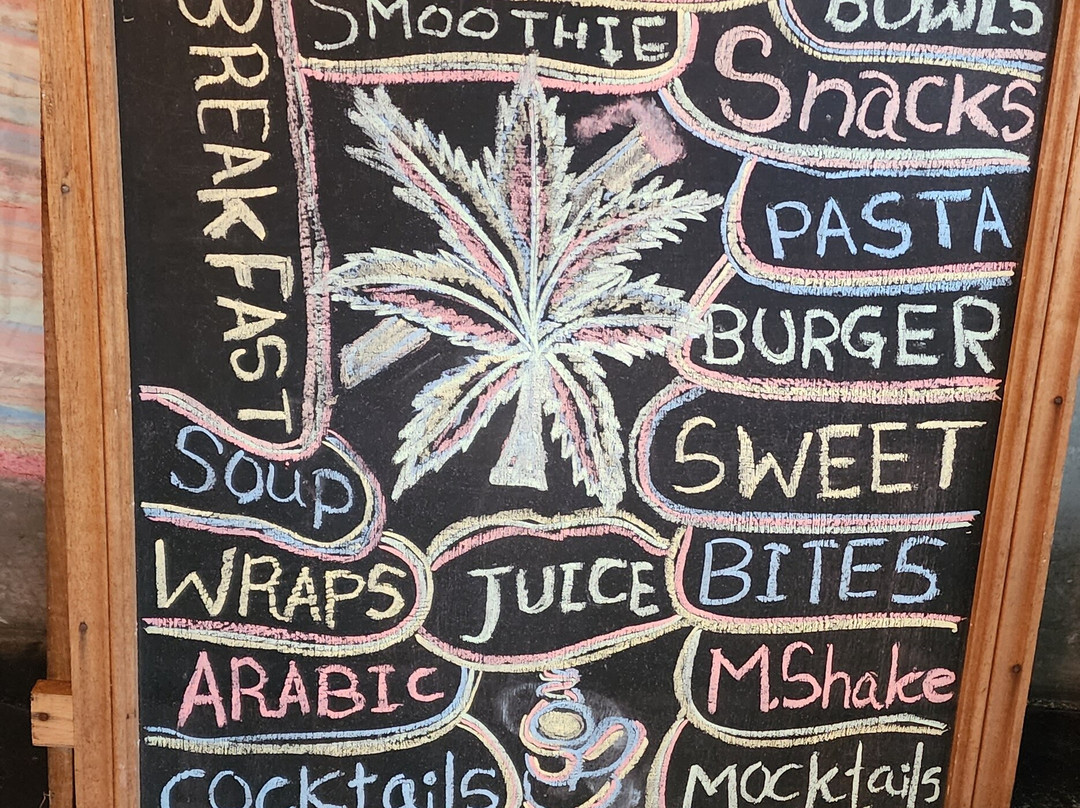 BREAKFAST
SMOOTHIE
BOWLS
Snacks
PASTA
BURGER
SWEET
BITES
Soup
WRAPS
JUICE
ARABIC
M.Shake
cocktails
Mocktails